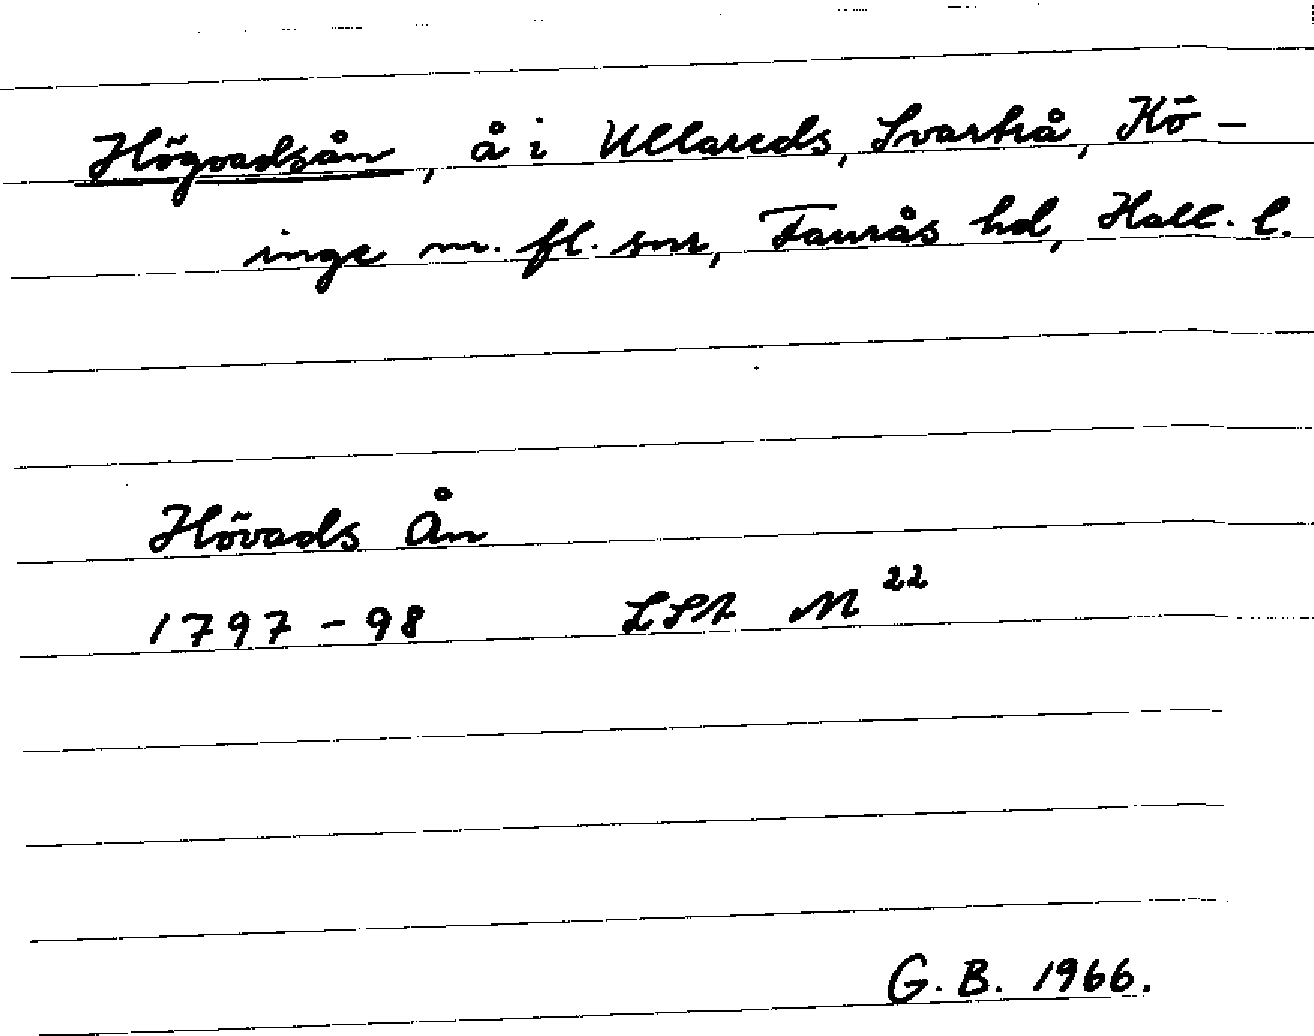 Högvadsån, å i Ullareds, Svartrå, Kö-
inge m. fl. snr, Faurås hd, Hall. l.
Hövads Ån
1797-98 LSA M 22
G. B. 1966.